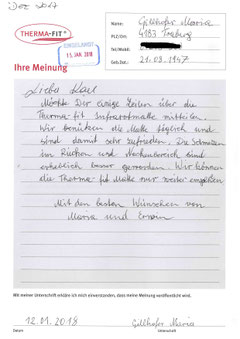 Dez 2017
THERMA-FIT®
EINGELANGT
15. JAN. 2018
Name: Gillhofer Maria
PLZ/Ort: 4183 Traberg
Tel/Mobil:
Geb.Dat.: 21.09.1947
Ihre Meinung
Liebe Karl
Möchte Dir einige Zeilen über die
Therma-fit Infrarotmatte mitteilen.
Wir benützen die Matte täglich und
sind damit sehr zufrieden. Die Schmerzen
im Rücken und Nackenbereich sind
erheblich besser geworden. Wir können
die Therma-fit Matte nur weiter empfehlen
Mit den besten Wünschen von
Maria und Erwin
Mit meiner Unterschrift erkläre ich mich einverstanden, dass meine Meinung veröffentlicht wird.
12.01.2018 Gillhofer Maria
Datum Unterschrift